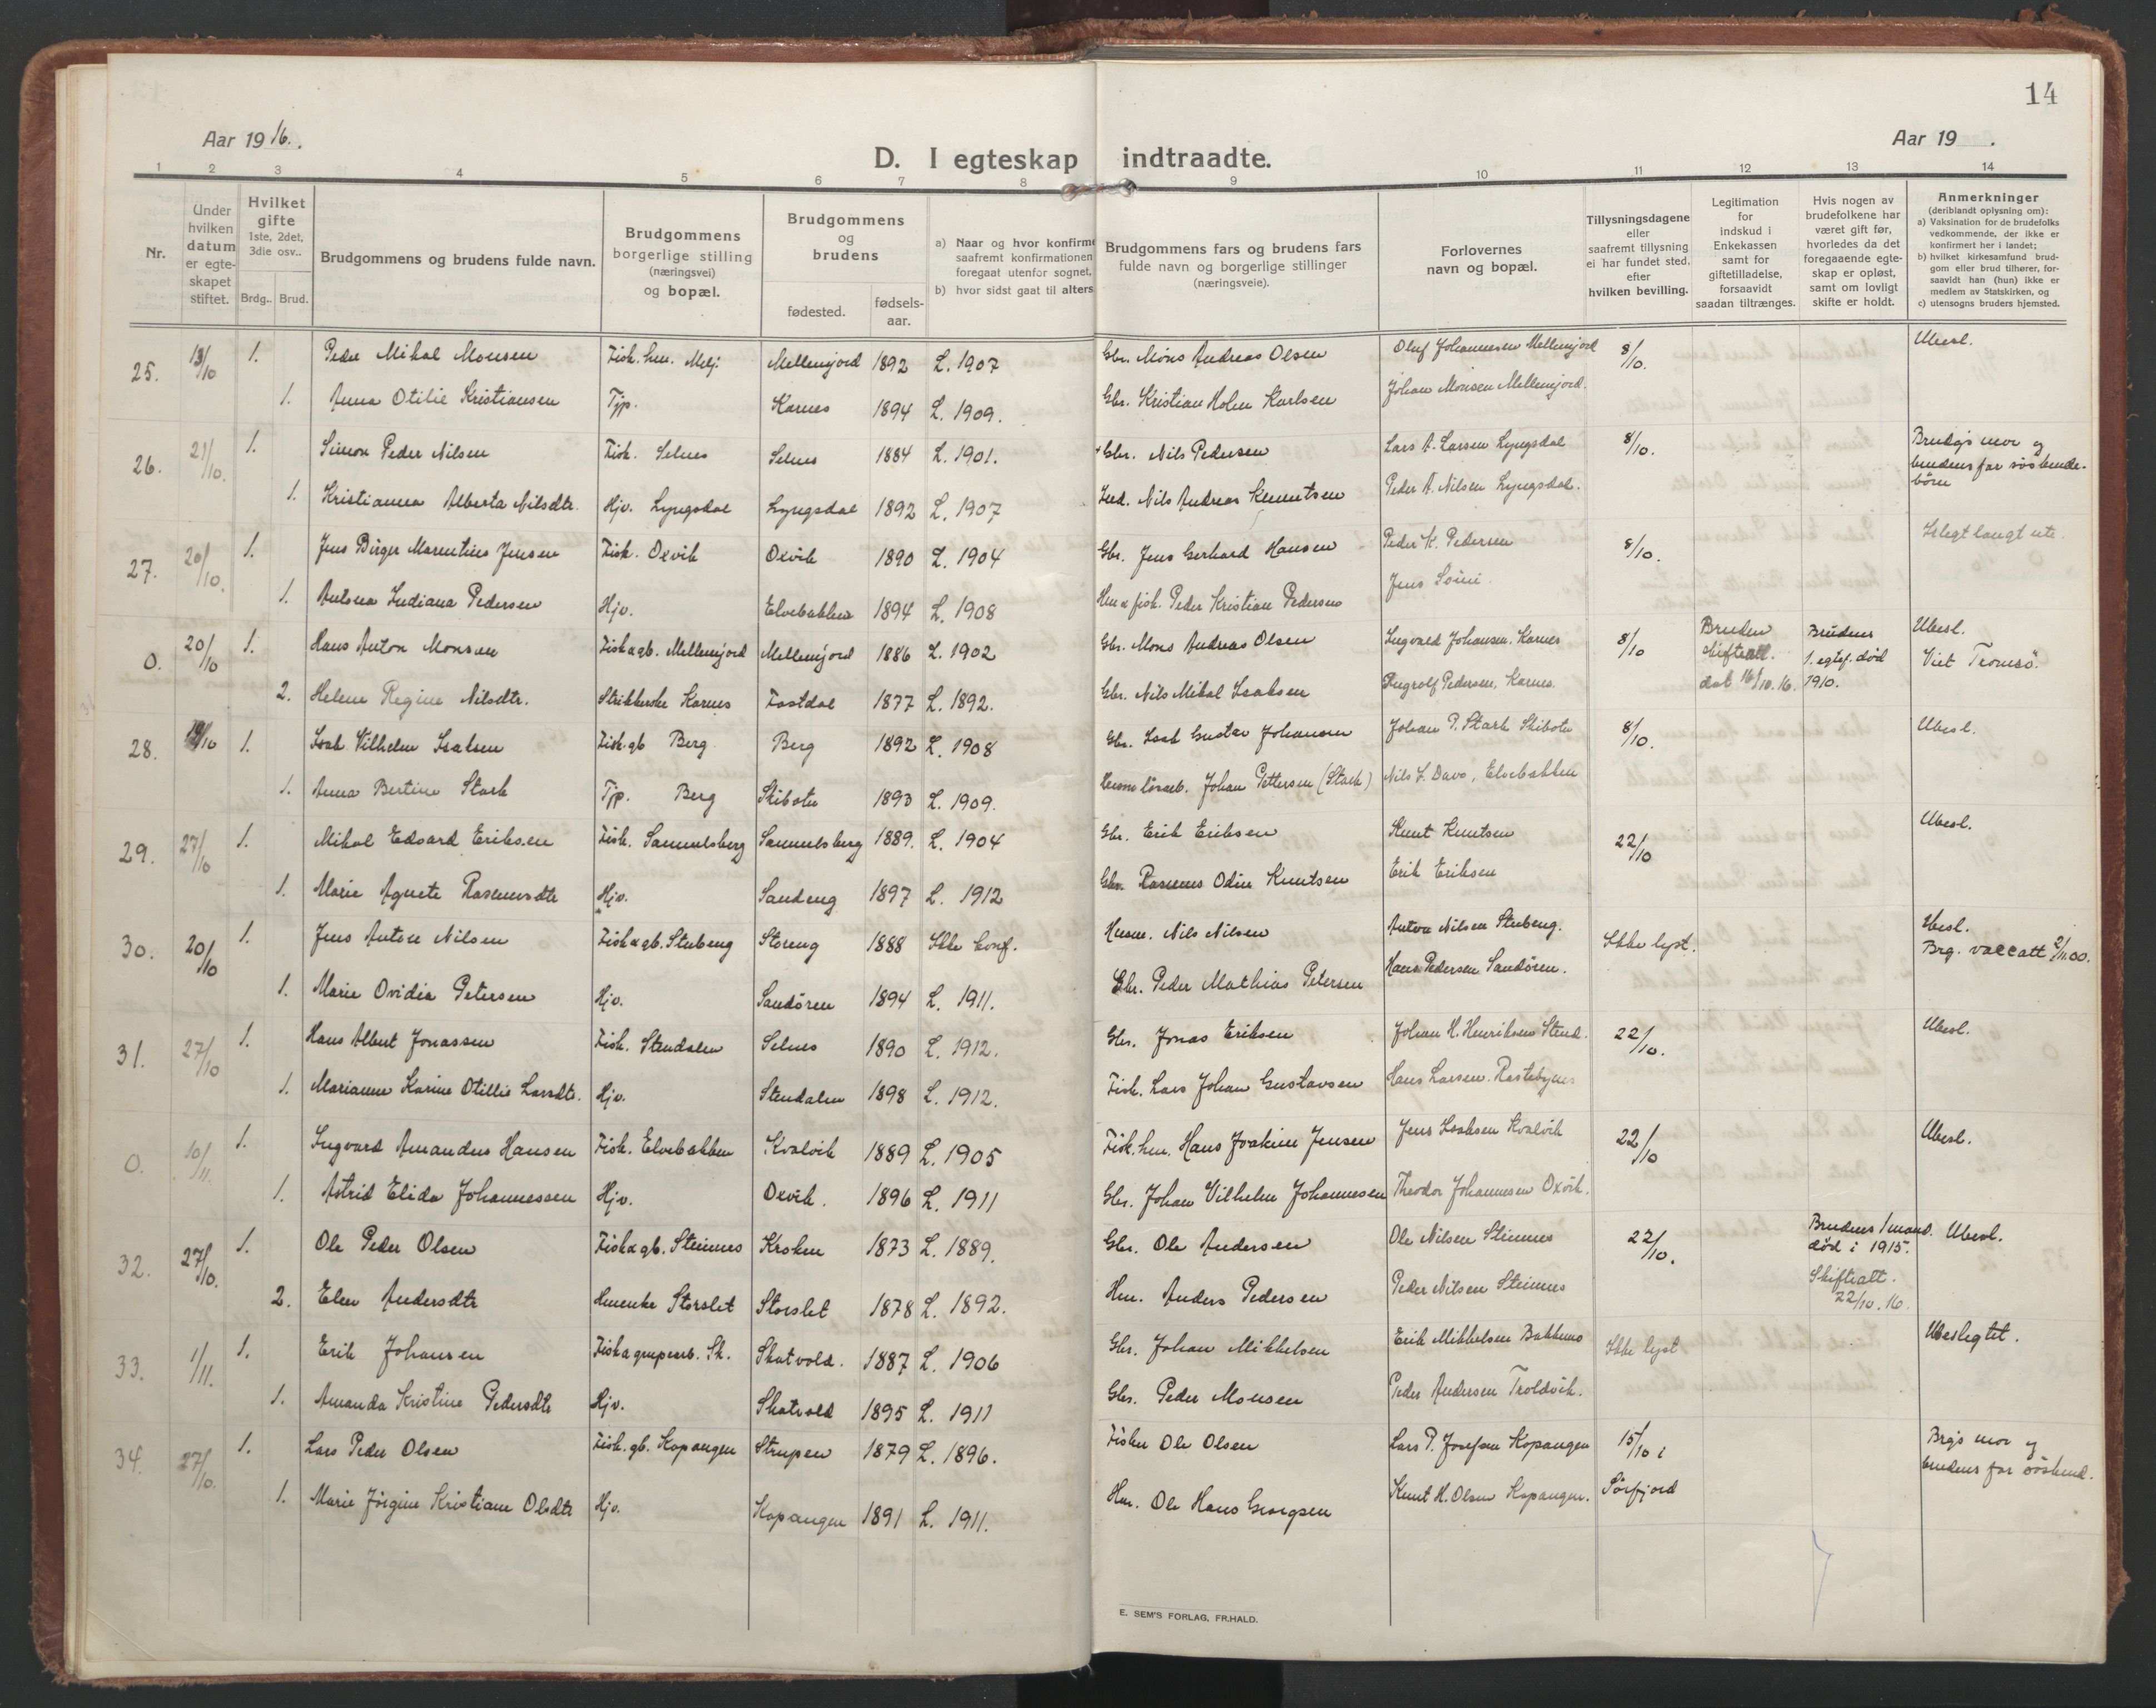 14
Aar 1916.
Aar 19 .
D. I egteskap indtraadte.
1 2 3 4 5 6 7 8 9 10 11 12 13 14
Nr.
Under hvilken datum er egteskapet stiftet.
Hvilket gifte 1ste, 2det, 3die osv..
Brdg.. Brud.
Brudgommens og brudens fulde navn.
Brudgommens borgerlige stilling (næringsvei) og bopæl.
Brudgommens og brudens
fødested. fødsels-aar.
a) Naar og hvor konfirme
saafremt konfirmationen
foregaat utenfor sognet,
b) hvor sidst gaat til alters
Brudgommens fars og brudens fars
fulde navn og borgerlige stillinger
(næringsveie).
Forlovernes
navn og bopæl.
Tillysningsdagene
eller
saafremt tillysning
ei har fundet sted,
efter
hvilken bevilling.
Legitimation
for
indskud i
Enkekassen
samt for
giftetilladelse,
forsaavidt
saadan tiltrænges.
Hvis nogen av
brudefolkene har
været gift før,
hvorledes da det
foregaaende egte-
skap er opløst,
samt om lovligt
skifte er holdt.
Anmerkninger
(deriblandt oplysning om):
a) Vaksination for de brudefolks
vedkommende, der ikke er
konfirmert her i landet;
b) hvilket kirkesamfund brud-
gom eller brud tilhører, for-
saavidt han (hun) ikke er
medlem av Statskirken, og
c) utensogns bruders hjemsted.
25. 13/10 1. Peder Mikal Monsen Fisk. hm. Melj. Mellemjord 1892 L. 1907 Gbr. Mons Andreas Olsen Oluf Johannesen Mellemjord 8/10. Ubesl.
1. Anna Otilie Kristiansen Tjp. Karnes 1894 L. 1909. Gbr. Kristian Holm Karlsen Johan Monsen Mellemjord.
26. 21/10. 1. Simon Peder Nilsen Fisk. Selnes Selnes 1884 L. 1901. Gbr. Nils Pedersen Lars A. Larsen Lyngsdal 8/10. Brudgs mor og
brudens far søskende-
børn
1. Kristianna Alberta Nilsdtr. Hjv. Lyngsdal Lyngsdal 1892 L. 1907 Ind. Nils Andreas Knutsen Peder A. Nilsen Lyngsdal.
27. 20/10. 1. Jens Birger Marentius Jensen Fisk. Oxvik Oxvik 1890 L. 1904 Gbr. Jens Gerhard Hansen Peder K. Pedersen 8/10. Islegt langt ute.
1. Antona Indiana Pedersen Hjv. Elvebakken 1894 L. 1908 Hm & fisk. Peder Kristian Pedersen Jens Soini
0. 20/10 1. Hans Anton Monsen Fisk & gb. Mellemjord Mellemjord 1886 L. 1902 Gbr. Mons Andreas Olsen Ingvald Johansen. Karnes 8/10 Bruden
skifteatt.
dat 16/10.16. Brudens
1. egtef. død
1910. Ubesl.
Viet Tromsø.
2. Helene Regine Nilsdtr. Strikkerske Karnes Fastdal 1877 L. 1892. Gbr. Nils Mikal Isaksen Pedersen, Karnes.
28. 19/10 1. Isak Vilhelm Isaksen Fisk. gb Berg Berg 1892 L. 1908 Gbr. Isak Gustav Johansen Johan P. Stark Skibotn 8/10. Ubesl.
1. Anna Bertine Stark Tjp. Berg Skibotn 1893 L. 1909. lösarb. Johan Pettersen (Stark) Nils L. Davo, Elvebakken
29. 27/10 1. Mikal Edvard Eriksen Fisk. Samuelsberg Samuelsberg 1889. L. 1904 Gbr. Erik Eriksen Knut Knutsen 22/10 Ubesl.
1. Marie Agnete Rasmusdtr Hjv. Sandeng 1897 L. 1912 Gbr. Rasmus Odin Knutsen Erik Eriksen
30. 20/10 1. Jens Anton Nilsen Fisk & gb. Stubeng Storeng 1888 Ikke conf. Husm. Nils Nilsen Anton Nilsen Stubeng. Ikke lyst. Ubesl.
Brg. vaccatt 2/11.00.
1. Marie Ovidia Petersen Hjv. Sandøren 1894 L. 1911. Gbr. Peder Mathias Petersen Hans Pedersen Sandøren.
31. 27/10 1. Hans Albert Jonassen Fisk. Stendalen Selnes 1890 L. 1912. Gbr. Jonas Eriksen Johan H. Henriksen Stend. 22/10. Ubesl.
1. Marianne Karine Otillie Larsdtr. Hjv. Stendalen 1898 L. 1912. Fisk. Lars Johan Gustavsen Hans Larsen. Rastebynes
0. 10/11. 1. Ingvard Amandus Hansen Fisk. Elvebakken Kvalvik 1889 L. 1905 Fisk. hm. Hans Joakim Jensen Jens Isaksen Kvalvik 22/10 Ubesl.
1. Astrid Elida Johannessen Hjv. Oxvik. 1896 L. 1911 Gbr. Johan Vilhelm Johannesen Theodor Johannesen Oxvik.
32. 27/10. 1. Ole Peder Olsen Fisk & gb. Steinnes Kroken 1873 L. 1889. Gbr. Ole Andersen Ole Nilsen Steinnes 22/10. Brudens 1 mand.
død i 1915.
Skifteatt.
22/10.16. Ubesl.
2. Elen Andersdtr Hmenke Storslet Storslet 1878 L. 1892. Hm. Anders Pedersen Peder Nilsen Steinnes
33. 1/11. 1. Erik Johansen Fisk & grupearb. Sk. Skatvold. 1887 L. 1906 Gbr. Johan Mikkelsen Erik Mikkelsen Ikke lyst Ubeslegtet.
1. Amanda Kristine Pedersdtr Hjv. Skatvold 1895 L. 1911 Gbr. Peder Monsen Peder Andersen Troldvik.
34. 27/10. 1. Lars Peder Olsen Fisk. gb. Kopangen Strupen 1879 L. 1896. Fisker Ole Olsen Lars P. Josefsen Kopangen 15/10 i Brgs mor og
brudens far søskend.
1. Marie Jörgine Kristiane Olsdtr Hjv. Kopangen 1891 L. 1911. Hm. Ole Hans Georgsen Knut H. Olsen Kopangen. Sørfjord
E. SEM'S FORLAG, FR.HALD.